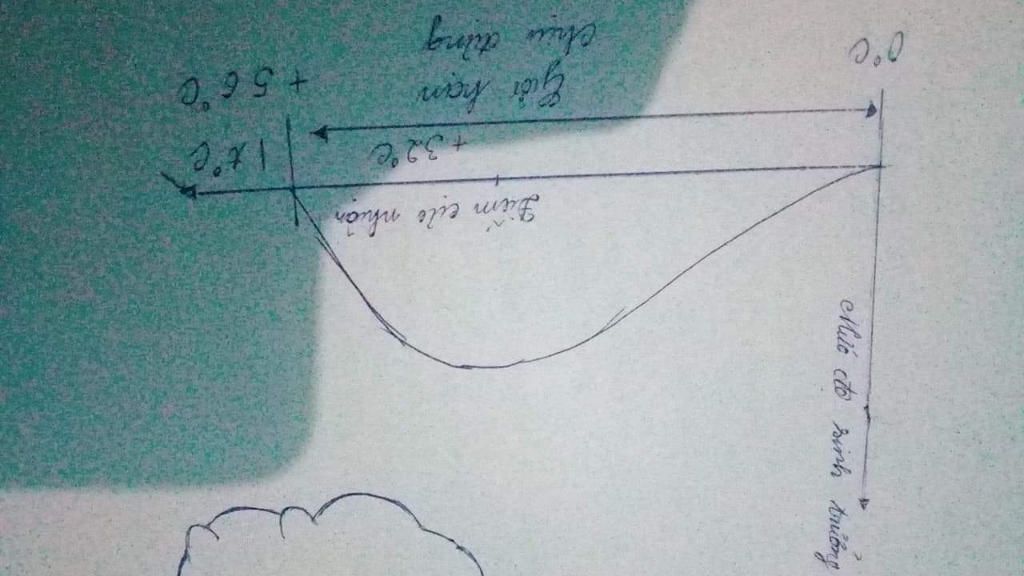 Mức độ sinh trưởng
Điểm cực thuận
+32°C
t°C
Giới hạn
chịu đựng
0°C
+56°C